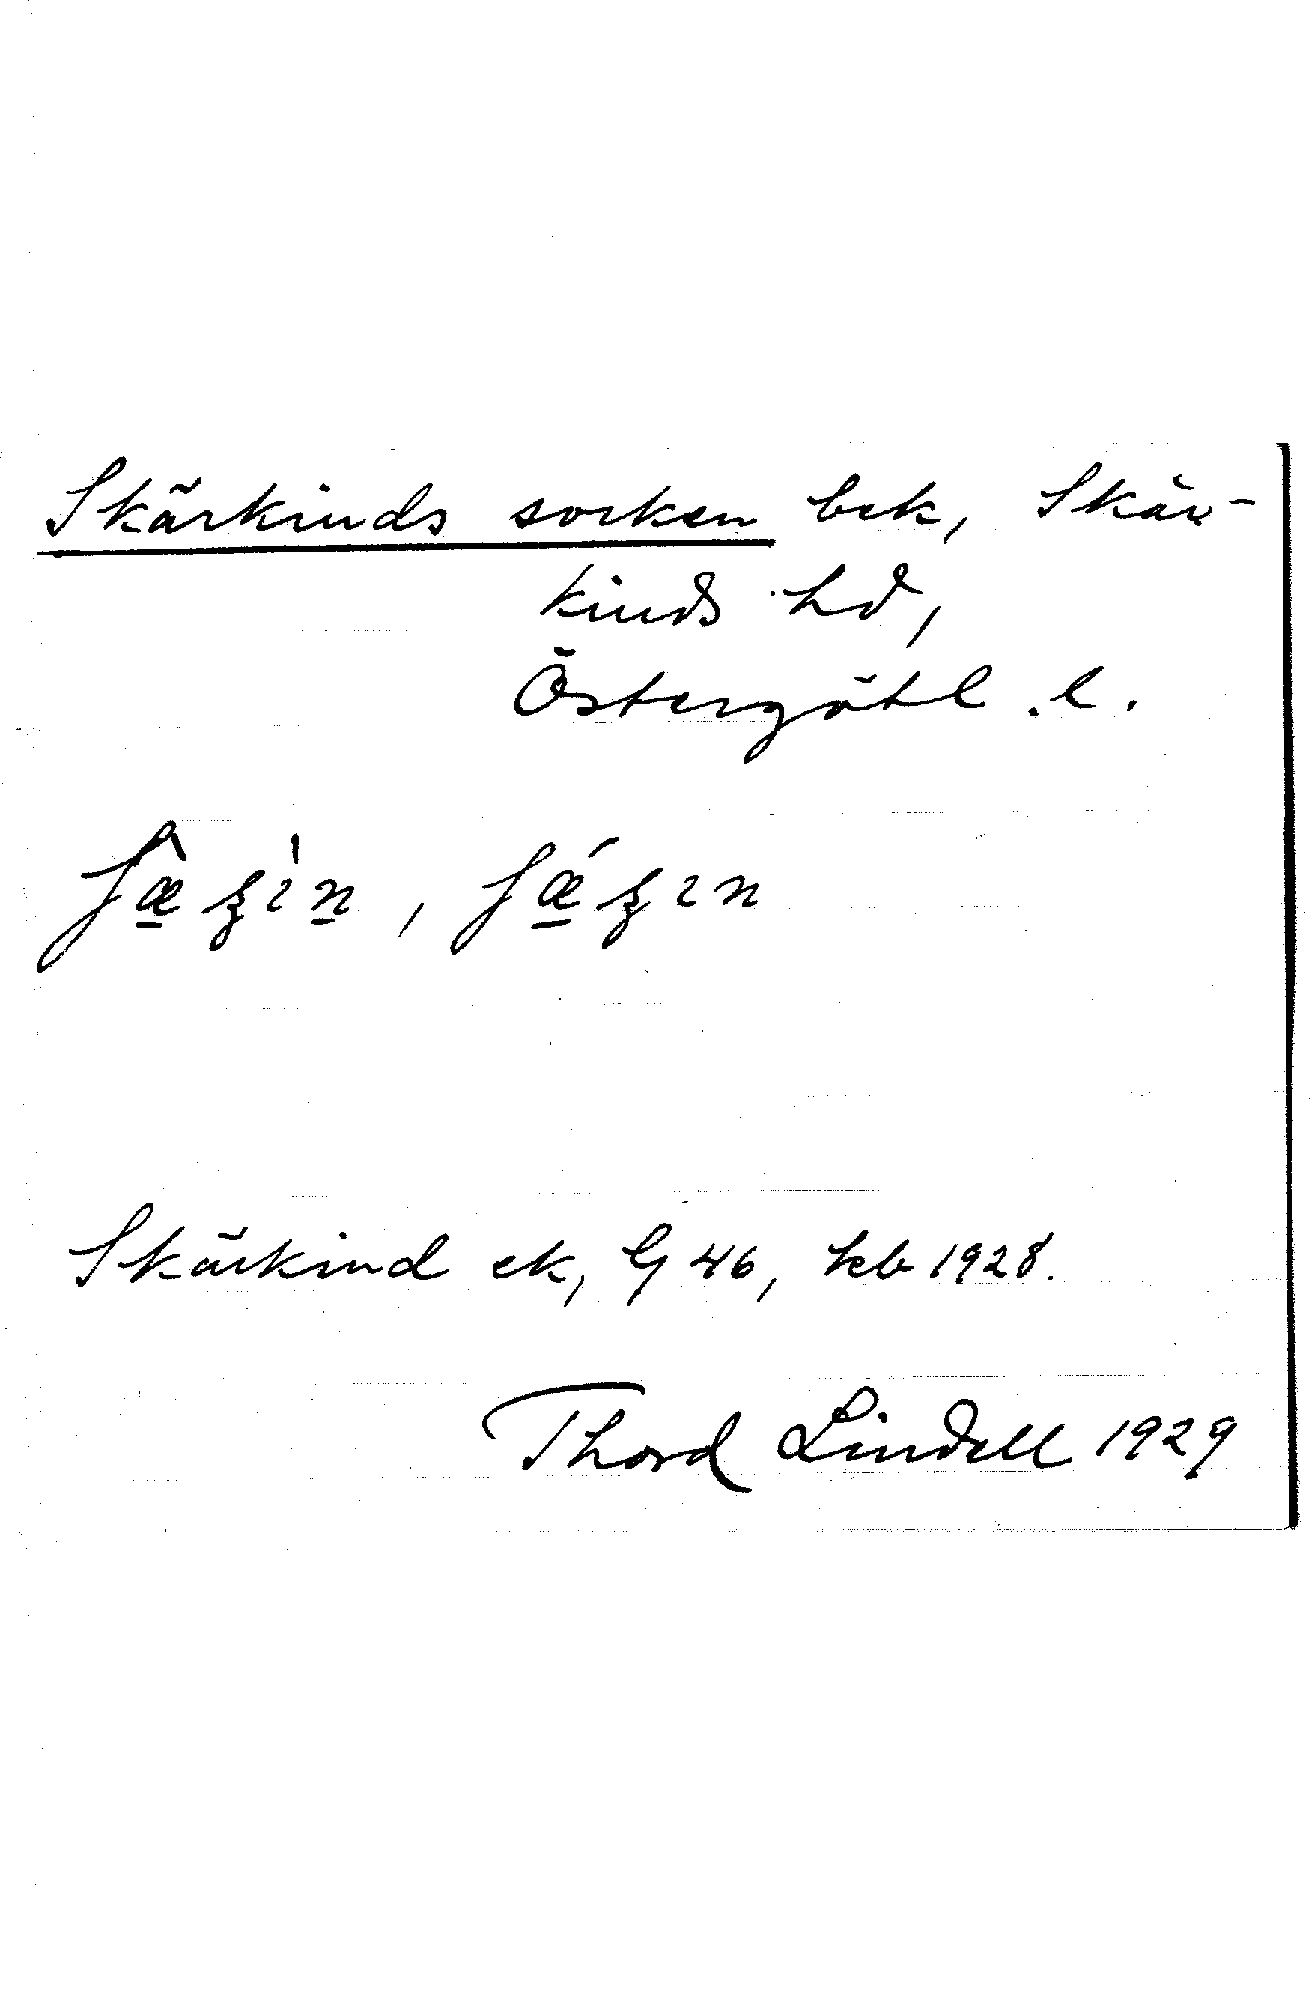 Skärkinds socken bek, Skär-
kinds hd,
Östergötl. l.
Skärkind ek, G 46, keb 1928.
Thord Lindell 1929